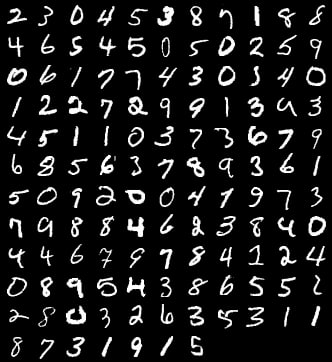 2 3 0 4 5 3 8 7 1 8 8
4 6 5 4 5 0 5 0 2 5 9
0 6 1 7 7 4 3 0 3 4 0
1 2 2 7 2 9 9 1 3 9 3
4 5 1 1 0 3 7 3 6 7 9
6 8 5 6 3 7 8 9 3 6 1
5 0 9 2 0 0 4 1 9 7 3
7 9 8 8 4 6 2 3 8 4 0
4 4 6 7 9 7 8 4 1 2 4
0 8 9 5 4 3 8 6 5 5 2
2 8 0 3 2 6 3 5 3 1 1
8 7 3 1 9 1 5